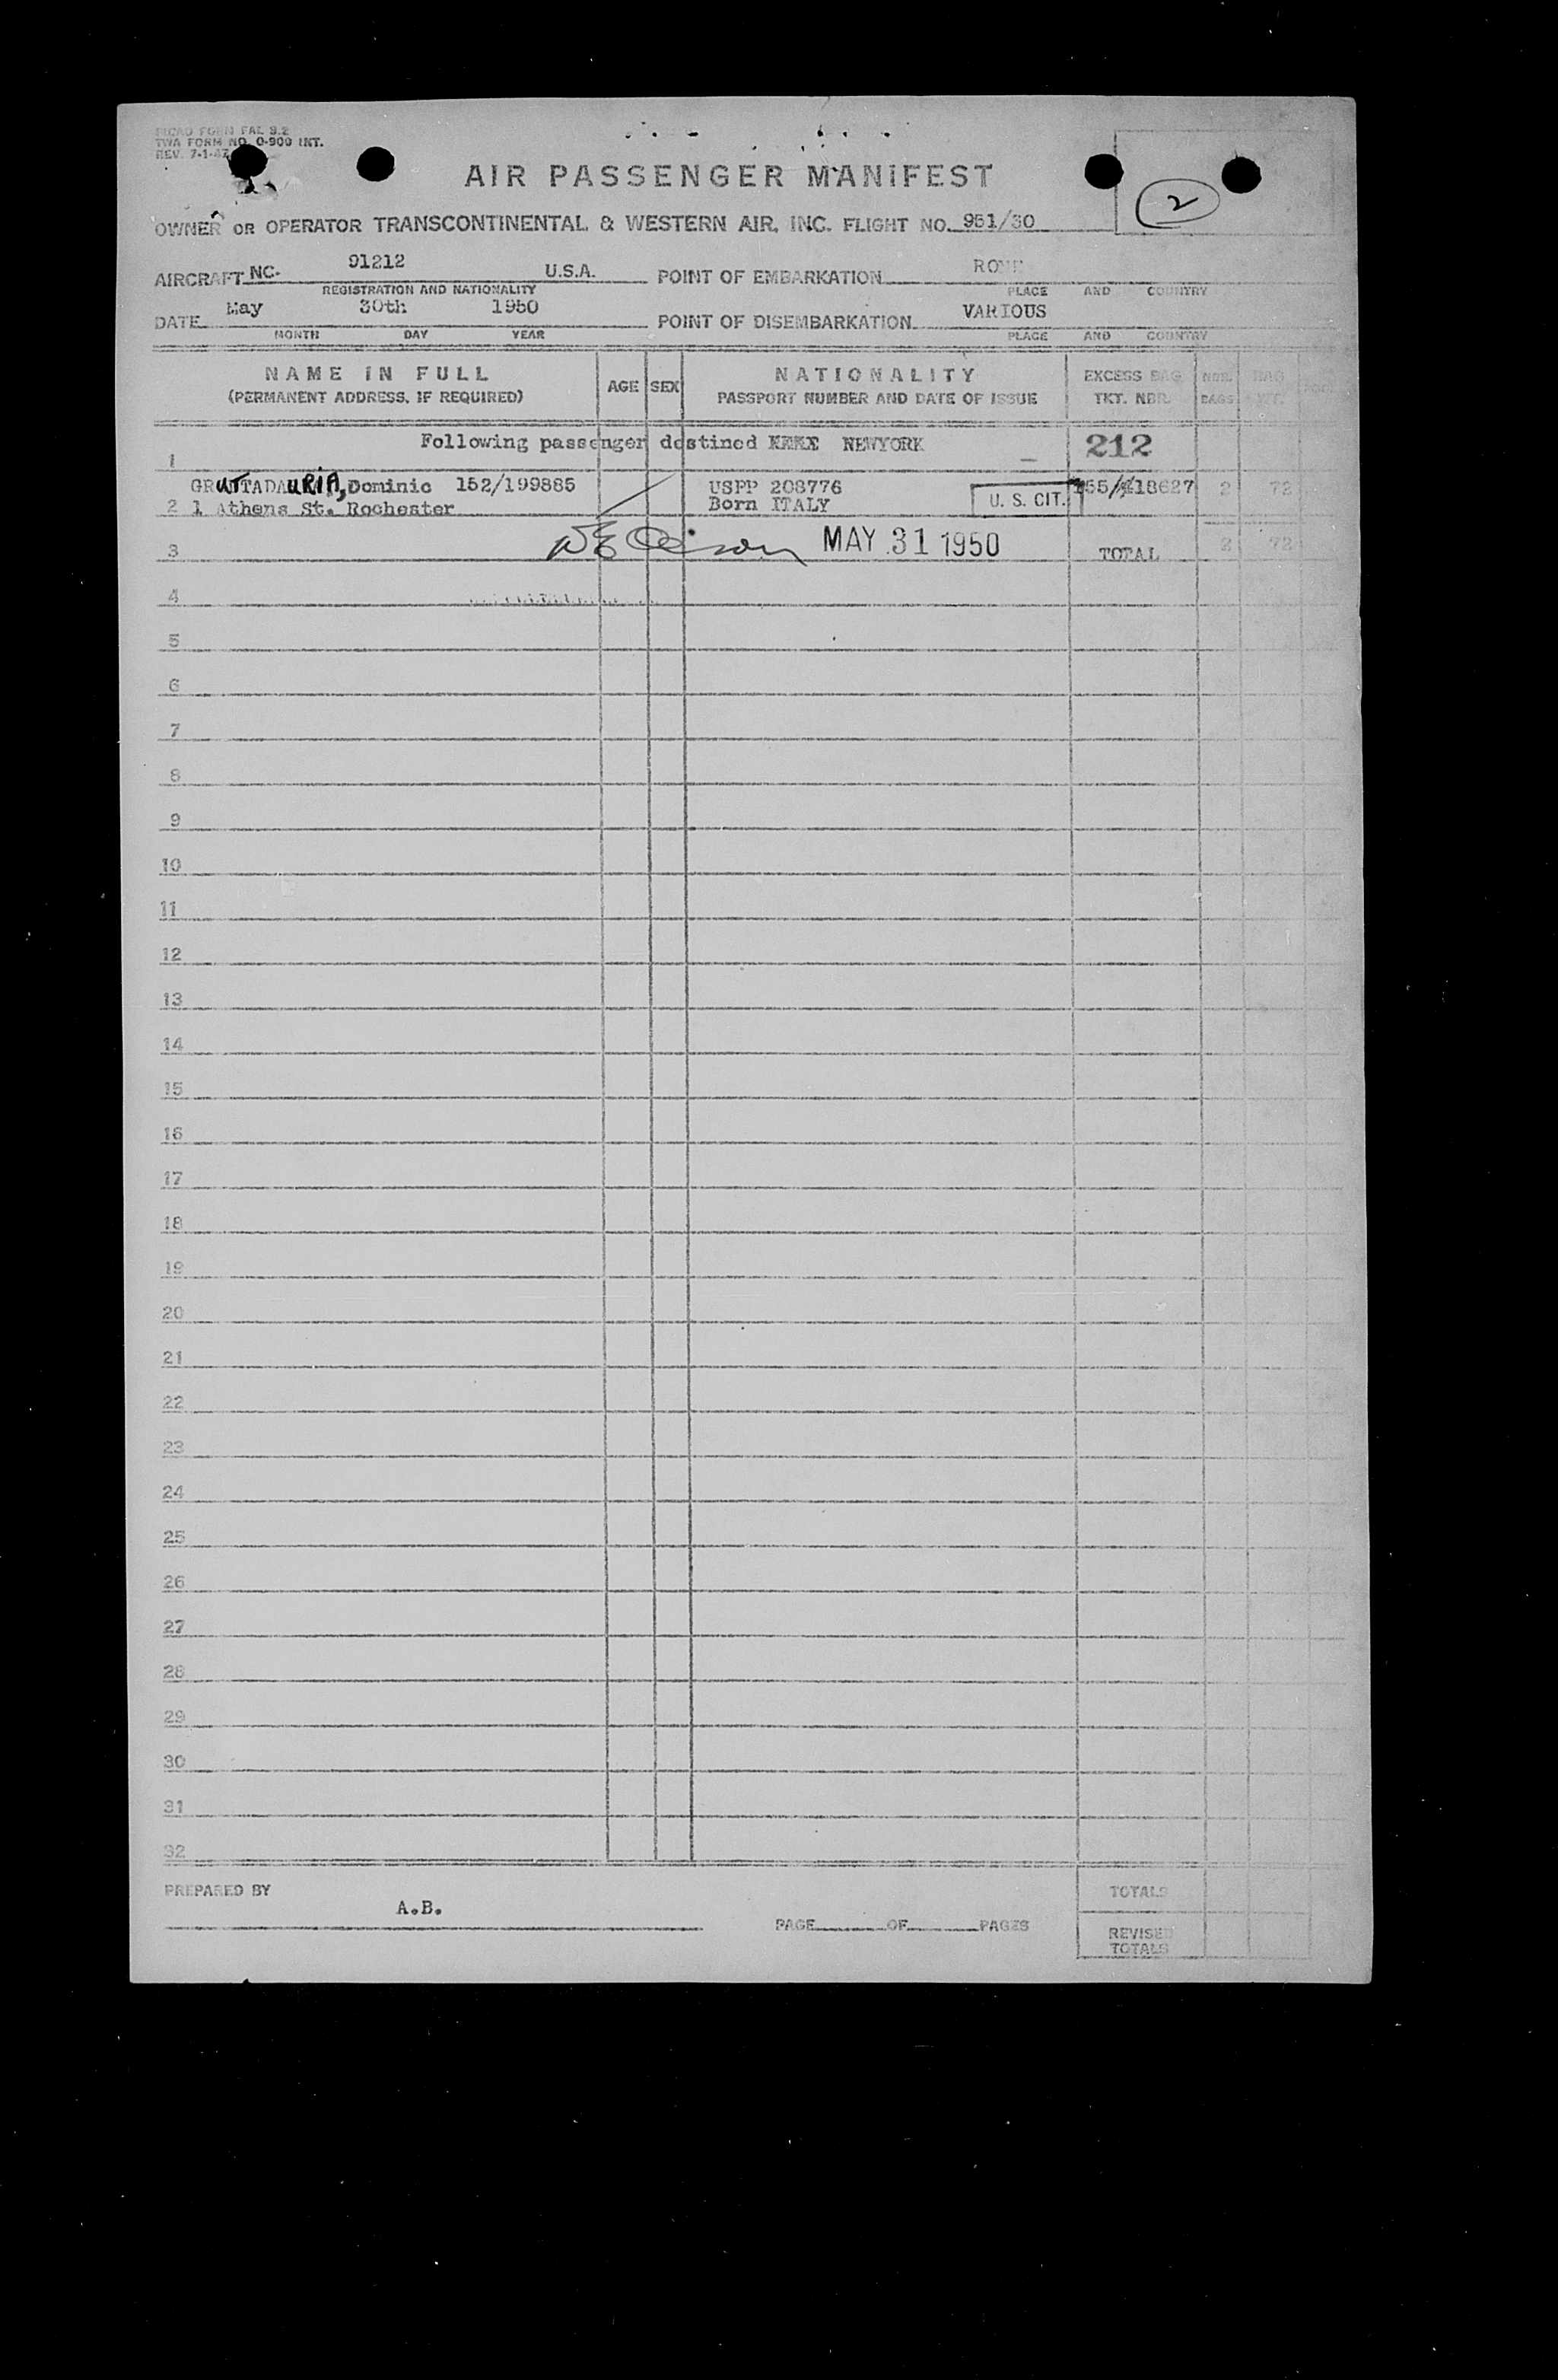 PICAO FORM FAL 9.2
TWA FORM NO. O-900 INT.
REV. 7-1-47
AIR PASSENGER MANIFEST
2
OWNER OR OPERATOR TRANSCONTINENTAL & WESTERN AIR, INC. FLIGHT NO. 951/30
AIRCRAFT NC- 91212 U.S.A. POINT OF EMBARKATION ROME
REGISTRATION AND NATIONALITY PLACE AND COUNTRY
DATE May 30th 1950 POINT OF DISEMBARKATION VARIOUS
MONTH DAY YEAR PLACE AND COUNTRY
NAME IN FULL AGE SEX NATIONALITY EXCESS BAG NBR. BAG
(PERMANENT ADDRESS, IF REQUIRED) PASSPORT NUMBER AND DATE OF ISSUE TKT. NBR. BAGS WT.
1 Following passenger destined NEWYORK 212
Dominic 152/199885 USPP 208776 2 72
2 1 Athens St. Rochester Born ITALY U. S. CIT.
3 MAY 31 1950 TOTAL 2 72
4
5
6
7
8
9
10
11
12
13
14
15
16
17
18
19
20
21
22
23
24
25
26
27
28
29
30
31
32
PREPARED BY TOTALS
A.B.
PAGE OF PAGES
REVISED
TOTALS